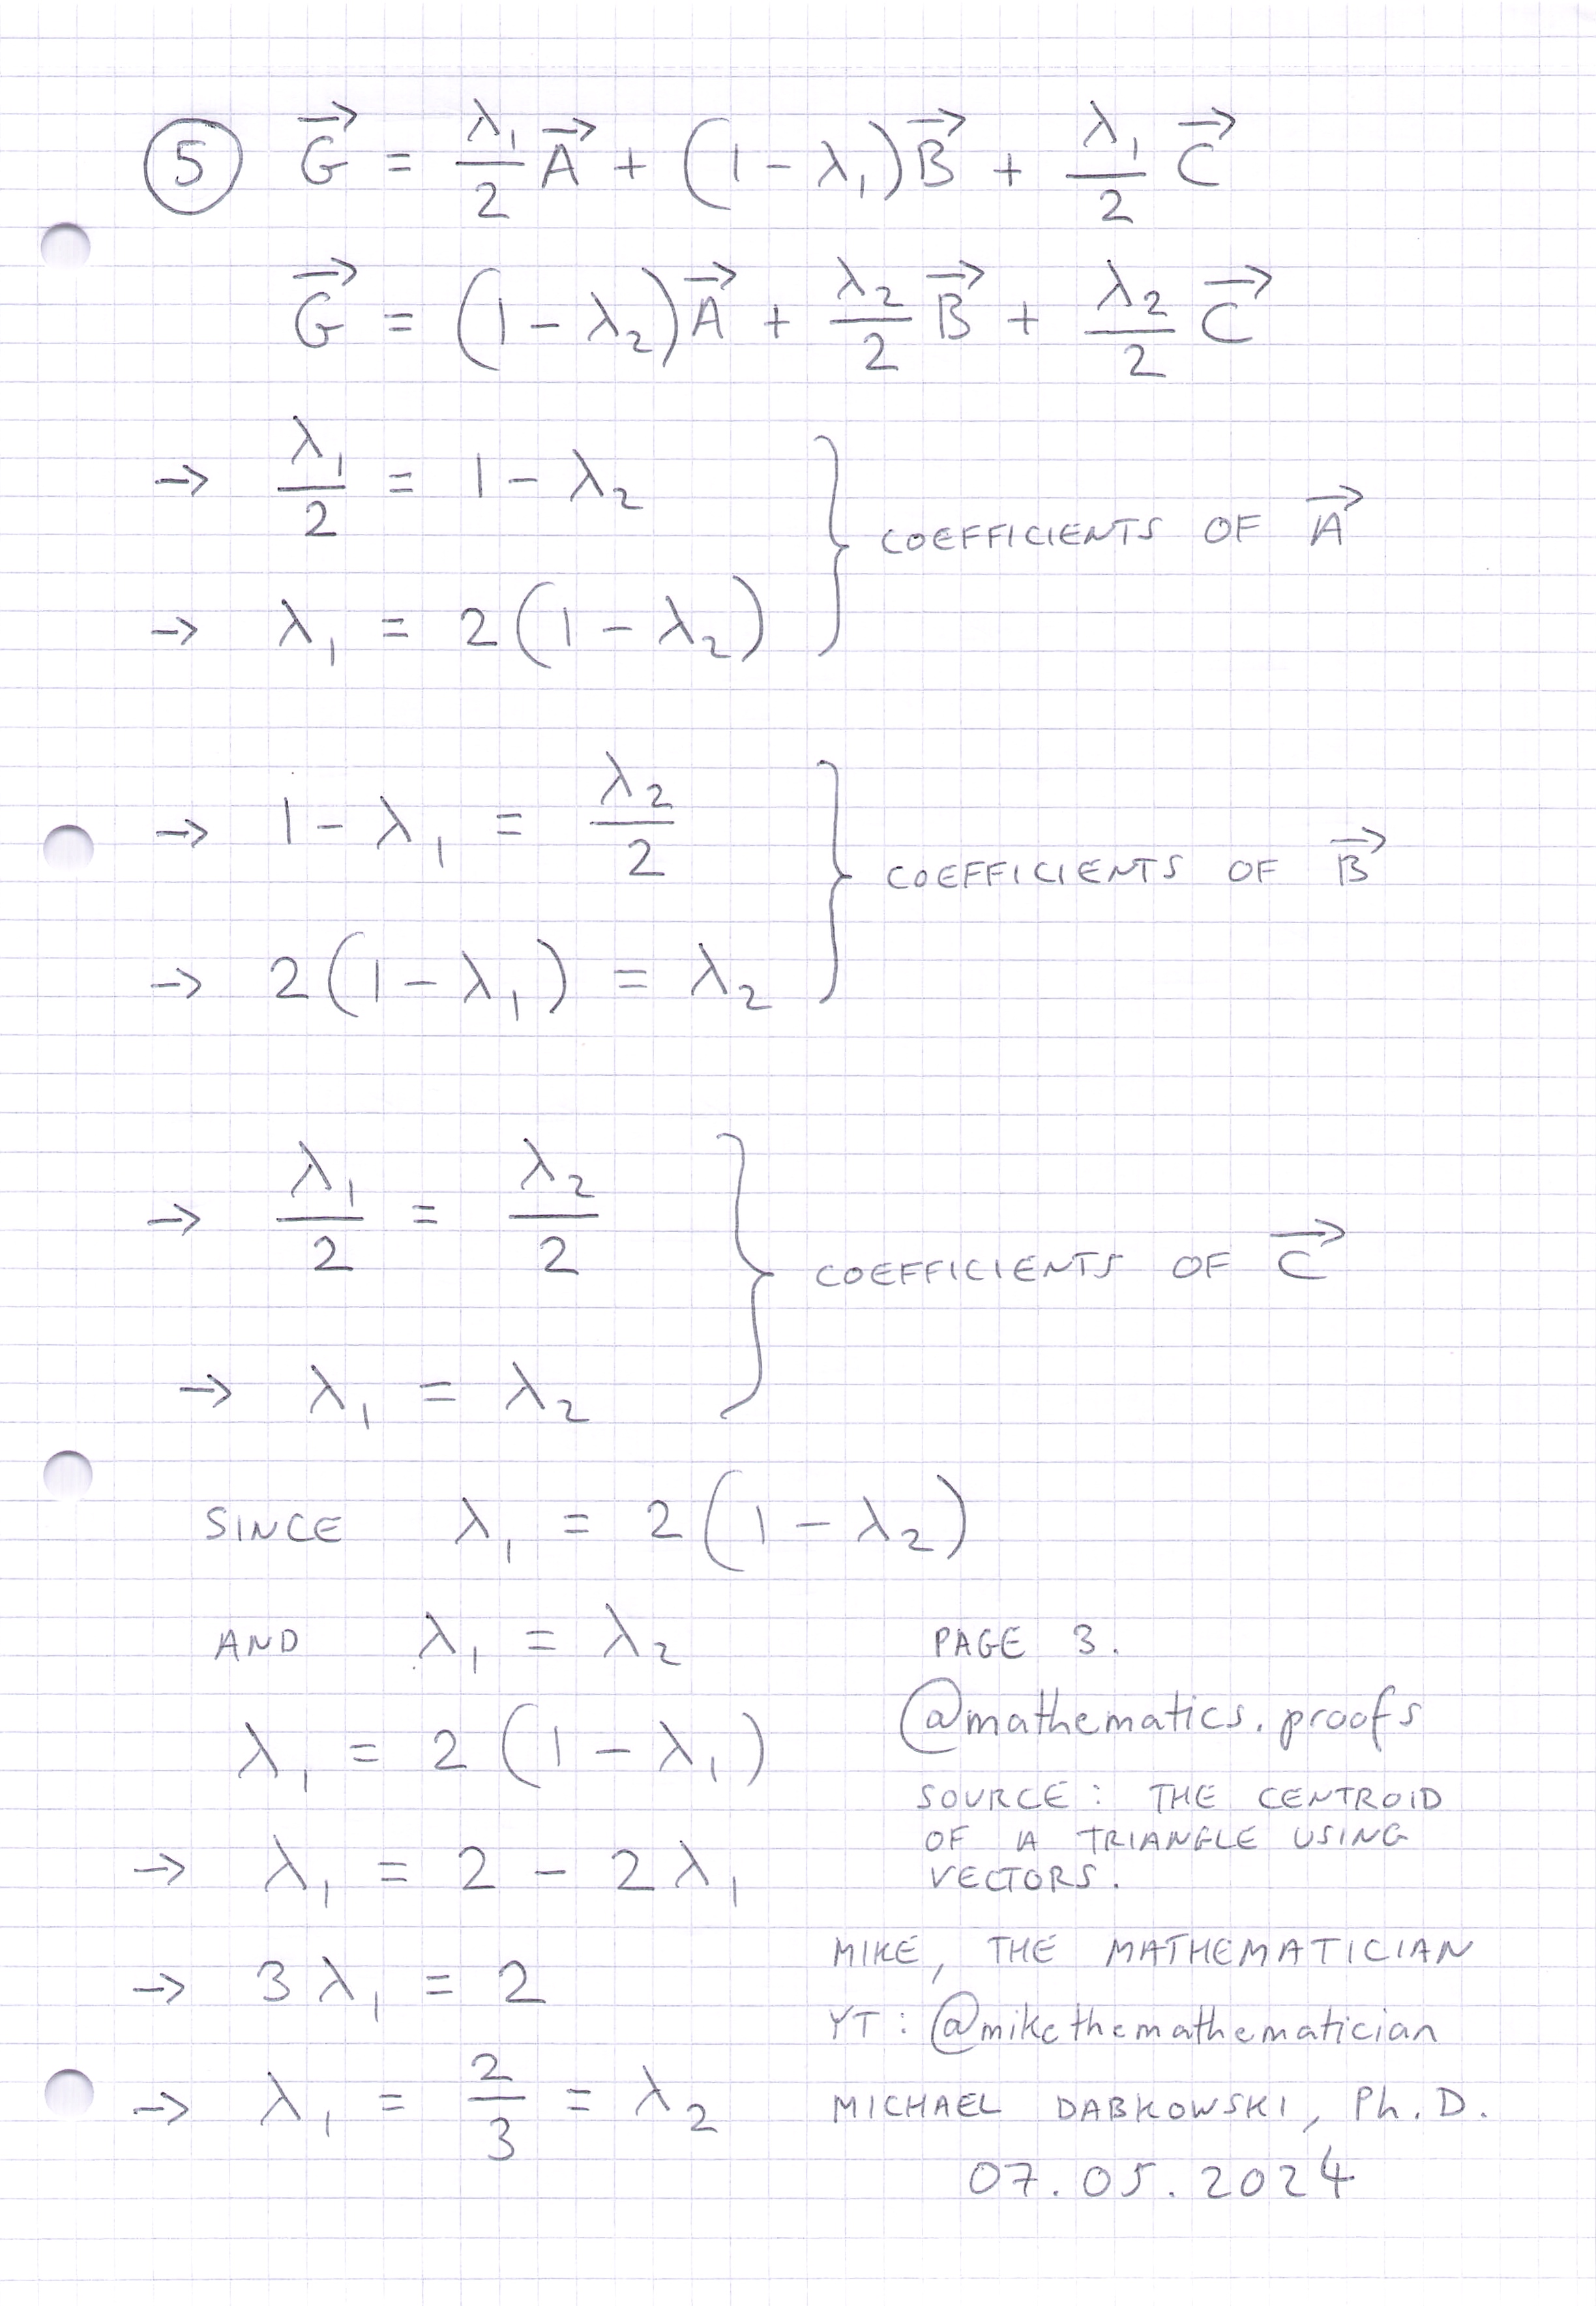 ⑤ G⃗ = λ₁/2 A⃗ + (1 - λ₁)B⃗ + λ₁/2 C⃗
G⃗ = (1 - λ₂)A⃗ + λ₂/2 B⃗ + λ₂/2 C⃗
→ λ₁/2 = 1 - λ₂
COEFFICIENTS OF A⃗
→ λ₁ = 2(1 - λ₂)
→ 1 - λ₁ = λ₂/2
COEFFICIENTS OF B⃗
→ 2(1 - λ₁) = λ₂
→ λ₁/2 = λ₂/2
COEFFICIENTS OF C⃗
→ λ₁ = λ₂
SINCE λ₁ = 2(1 - λ₂)
AND λ₁ = λ₂
λ₁ = 2(1 - λ₁)
→ λ₁ = 2 - 2λ₁
→ 3λ₁ = 2
→ λ₁ = 2/3 = λ₂
PAGE 3.
@mathematics.proofs
SOURCE: THE CENTROID
OF A TRIANGLE USING
VECTORS.
MIKE, THE MATHEMATICIAN
YT: @mikethemathematician
MICHAEL DABKOWSKI, Ph.D.
07.05.2024